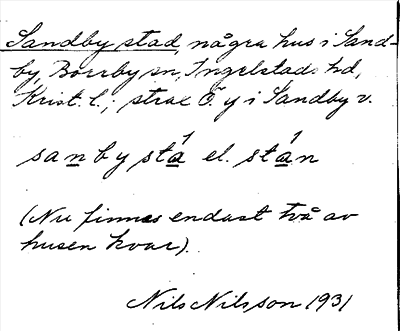 Sandby stad, några hus i Sand-
by, Borrby sn, Ingelstads hd,
Krist. l.; strax Ö. y i Sandby v.
sanby sta el. stan
(Nu finnes endast två av
husen kvar).
Nils Nilsson 1931